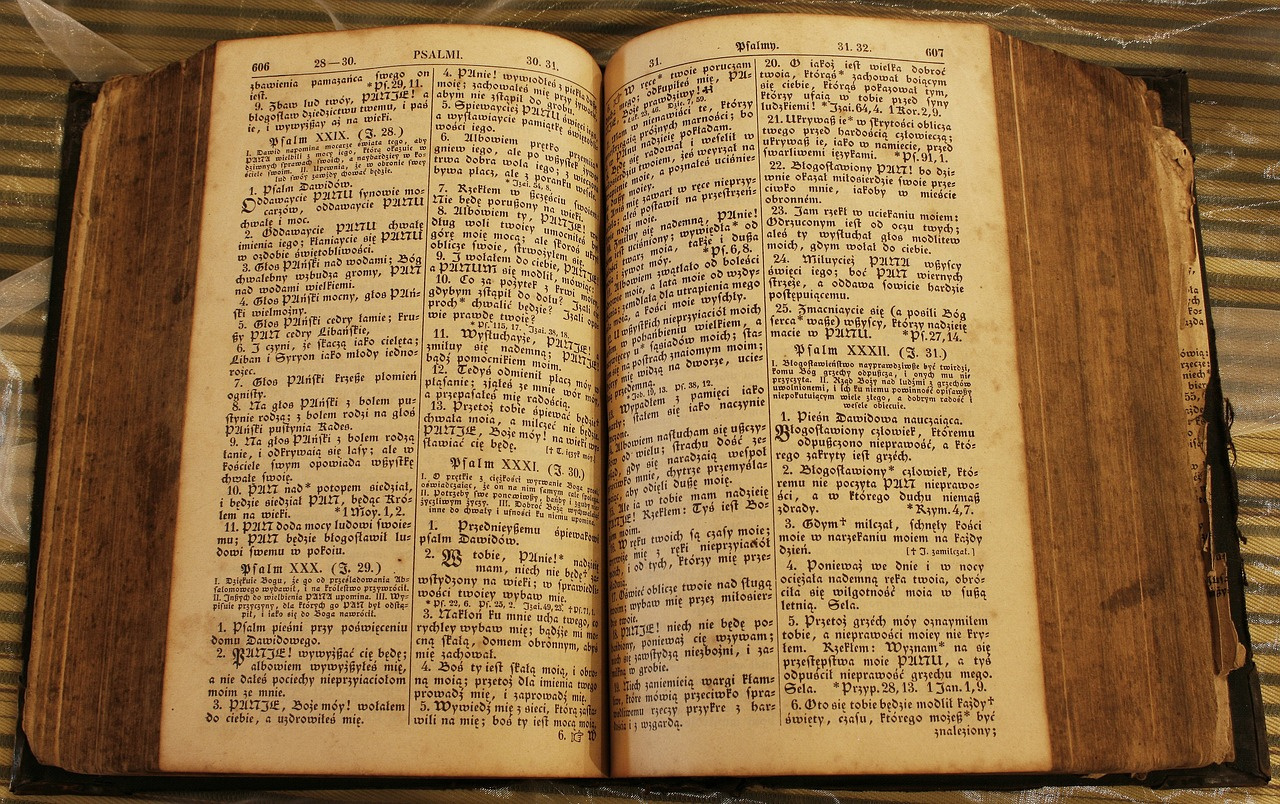 606 28—30. PSALMI. 30. 31.
zbawienia pamazańca swego on
iest. *Ps. 29, 11.
9. Zbaw lud twóy, PANIE! a
błogosław dziedzictwu twemu, i paś
ie, i wywyższay aż na wieki.
Psalm XXIX. (J. 28.)
I. Dawid napomina mocarze świata tego, aby
PANA wielbili z mocy iego, którą okazuie w
dziwnych sprawach swoich, a naybardziey w ko-
ściele swoim. II. Upewnia, że w obronie swey
lud swóy zawżdy chować będzie.
1. Psalm Dawidów.
Oddawaycie PANU synowie mo-
carzów, oddawaycie PANU
chwałę i moc.
2. Oddawaycie PANU chwałę
imienia iego; kłaniaycie się PANU
w ozdobie świętobliwości.
3. Głos PAński nad wodami; Bóg
chwalebny wzbudza gromy, PAN
nad wodami wielkiemi.
4. Głos PAński mocny, głos PAń-
ski wielmożny.
5. Głos PAński cedry łamie; kru-
szy PAN cedry Libańskie,
6. I czyni, że skaczą iako cielęta;
Liban i Syryon iako młody iedno-
rożec.
7. Głos PAński krzesze płomień
ognisty.
8. Na głos PAński z bolem pu-
stynie rodzą; z bolem rodzi na głos
PAński pustynia Kades.
9. Na głos PAński z bolem rodzą
łanie, i odkrywaią się lasy; ale w
kościele swym opowiada wszystkę
chwałę swoię.
10. PAN nad* potopem siedział,
i będzie siedział PAN, będąc Kró-
lem na wieki. *1 Moy. 1, 2.
11. PAN doda mocy ludowi swoie-
mu; PAN będzie błogosławił lu-
dowi swemu w pokoiu.
Psalm XXX. (J. 29.)
I. Dziękuie Bogu, że go od prześladowania Ab-
salomowego wybawił, i na królestwo przywrócił.
II. Inszych do wielbienia PANA upomina. III. Wy-
pisuie przyczyny, dla których go PAN był odstą-
pił, i iako się do Boga nawrócił.
1. Psalm pieśni przy poświęceniu
domu Dawidowego.
2. PANIE! wywyższać cię będę;
albowiem wywyższyłeś mię,
a nie dałeś pociechy nieprzyiaciołom
moim ze mnie.
3. PANIE, Boże móy! wołałem
do ciebie, a uzdrowiłeś mię.
4. PAnie! wywiodłeś z piekła duszę
moię; zachowałeś mię przy żywocie,
abym nie zstąpił do grobu.
5. Śpiewaycież PANU święci iego,
a wysławiaycie pamiątkę świętobli-
wości iego.
6. Albowiem prętko przemiia
gniew iego, ale po wszystek żywot
trwa dobra wola iego; z wieczora
bywa płacz, ale z poranku wesele.
*Izai. 54, 8.
7. Rzekłem w szczęściu swoiem:
Nie będę poruszony na wieki.
8. Albowiem ty, PANIE!
dług woli twoiey umocniłeś był
górę moię mocą; ale skoroś ukrył
oblicze swoie, strwożyłem się.
9. I wołałem do ciebie, PANIE!
a PANUM się modlił, mówiąc:
10. Co za pożytek z krwi moiey,
gdybym zstąpił do dołu? Izali
proch* chwalić będzie? Izali opo-
wie prawdę twoię?
* Ps. 115, 17. Izai. 38, 18.
11. Wysłuchayże, PANIE!
zmiłuy się nademną; PANIE!
bądź pomocnikiem moim.
12. Tedyś odmienił płacz móy w
pląsanie; zjąłeś ze mnie wór móy,
a przepasałeś mię radością.
13. Przetoż tobie śpiewać będzie
chwała moia, a milczeć nie będzie.
PANIE, Boże móy! na wieki wy-
sławiać cię będę. [† T. język móy.]
Psalm XXXI. (J. 30.)
I. O prętkie z ciężkości wyrwanie Boga prosi,
oświadczaiąc, że on na nim samym cale polega.
II. Potrzeby swe ponowiwszy, hańby i zguby
życzliwym życzy. III. Dobroć Bożą wychwala,
inne do chwały i ufności ku niemu upomina.
1. Przednieyszemu śpiewakowi
psalm Dawidów.
2. W tobie, PAnie!* nadzieię
mam, niech nie będę† za-
wstydzony na wieki; w sprawiedli-
wości twoiey wybaw mię.
* Ps. 22, 6. Ps. 25, 2. Izai. 49, 23. † Ps. 71, 1.
3. Nakłoń ku mnie ucha twego, co
rychley wybaw mię; bądźże mi mo-
cną skałą, domem obronnym, abyś
mię zachował.
4. Boś ty iest skałą moią, i obro-
ną moią; przetoż dla imienia twego
prowadź mię, i zaprowadź mię.
5. Wywiedź mię z sieci, którą zasta-
wili na mię; boś ty iest mocą moią.
6. ☞ W
31. Psalmy. 31. 32. 607
W ręce* twoie poruczam
mego; odkupiłeś mię, PA-
prawdziwy!
Łuk. 23, 46. Dzie. 7, 59.
Mam w nienawiści te, którzy
próżnych marności; bo
PAnu nadzieię pokładam.
Będę się radował i weselił w
twoiem, żeś weyrzał na
moie, a poznałeś uciśnie-
moiey.
mię zawarł w ręce nieprzy-
aleś postawił na przestrzeń-
nogi moie.
Zmiłuy się nademną, PAnie!
uciśniony; wywiędła* od
twarz moia, także i dusza
żywot móy. *Ps. 6, 8.
Albowiem zwątlało od boleści
moie, a lata moie od wzdy-
zemdlała dla utrapienia mego
moia, a kości moie wyschły.
U wszystkich nieprzyiaciół moich
w pohańbieniu wielkiem, a
u* sąsiadów moich; sta-
na postrach znaiomym moim;
mię widzą na dworze, ucie-
przedemną.
* Job. 19, 13. Ps. 38, 12.
Wypadłem z pamięci iako
stałem się iako naczynie

Albowiem nasłucham się uszczy-
od wielu; strachu dość ze-
gdy się naradzaią wespół
mnie, chytrze przemyśla-
aby odięli duszę moię.
Ale ia w tobie mam nadzieię
PANIE! Rzekłem: Tyś iest Bo-
moim.
W ręku twoich są czasy moie;
mię z ręki nieprzyiaciół
i od tych, którzy mię prze-

Oświeć oblicze twoie nad sługą
wybaw mię przez miłosier-
twoie.
PANIE! niech nie będę po-
ponieważ cię wzywam;
niech się zawstydzą niezbożni, i za-
milkną w grobie.
Niech zaniemieią wargi kłam-
które mówią przeciwko spra-
wiedliwemu rzeczy przykre z har-
dością i z wzgardą.
20. O iakoż iest wielka dobroć
twoia, którąś* zachował boiącym
się ciebie, którąś pokazował tym,
którzy ufaią w tobie przed syny
ludzkiemi! *Izai. 64, 4. 1 Kor. 2, 9.
21. Ukrywasz ie* w skrytości oblicza
twego przed hardością człowieczą;
ukrywasz ie, iako w namiecie, przed
swarliwemi językami. *Ps. 91, 1.
22. Błogosławiony PAN! bo dzi-
wnie okazał miłosierdzie swoie prze-
ciwko mnie, iakoby w mieście
obronnem.
23. Jam rzekł w uciekaniu moiem:
Odrzuconym iest od oczu twych;
aleś ty wysłuchał głos modlitew
moich, gdym wołał do ciebie.
24. Miłuycież PANA wszyscy
święci iego; boć PAN wiernych
strzeże, a oddawa sowicie hardzie
postępuiącemu.
25. Zmacniaycie się (a posili Bóg
serca* wasze) wszyscy, którzy nadzieię
macie w PANU. *Ps. 27, 14.
Psalm XXXII. (J. 31.)
I. Błogosławieństwo nayprawdziwsze być twierdzi,
komu Bóg grzechy odpuszcza, i onych mu nie
przyczyta. II. Rząd Boży nad ludźmi z grzechów
uwolnionemi, i ich ku niemu powinność opisawszy
niepokutuiącym wiele złego, a dobrym radość i
wesele obiecuie.
1. Pieśń Dawidowa nauczaiąca.
Błogosławiony człowiek, któremu
odpuszczono nieprawość, a któ-
rego zakryty iest grzech.
2. Błogosławiony* człowiek, któ-
remu nie poczyta PAN nieprawo-
ści, a w którego duchu niemasz
zdrady. *Rzym. 4, 7.
3. Gdym† milczał, schnęły kości
moie w narzekaniu moiem na każdy
dzień. [† J. zamilczał.]
4. Ponieważ we dnie i w nocy
ociężała nademną ręka twoia, obró-
ciła się wilgotność moia w suszą
letnią. Sela.
5. Przetoż grzech móy oznaymiłem
tobie, a nieprawości moiey nie kry-
łem. Rzekłem: Wyznam* na się
przestępstwa moie PANU, a tyś
odpuścił nieprawość grzechu mego.
Sela. *Przyp. 28, 13. 1 Jan. 1, 9.
6. Oto się tobie będzie modlił każdy†
święty, czasu, którego możesz* być
znaleziony;